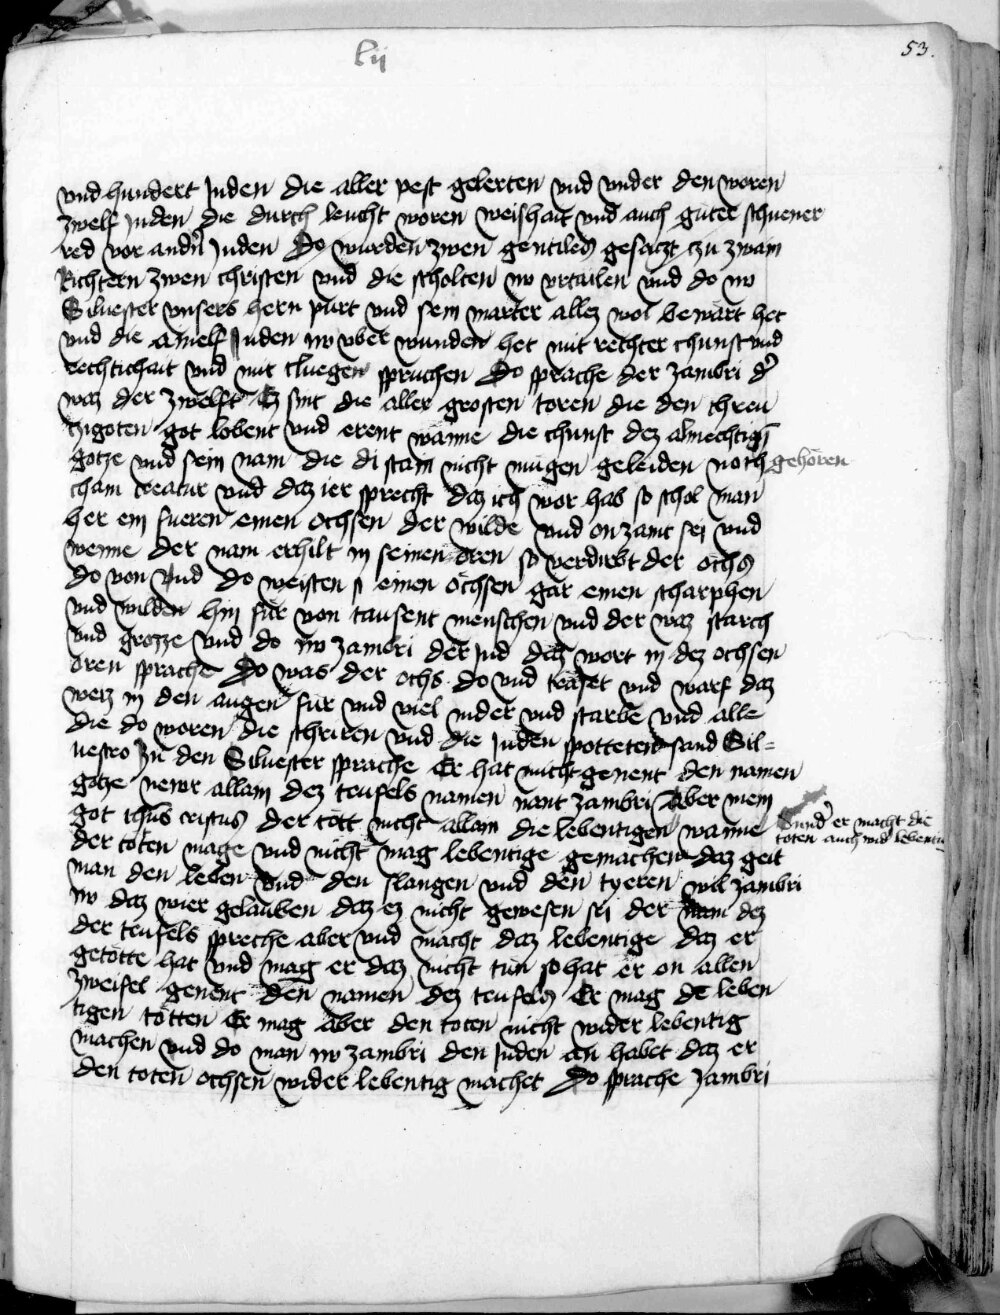 53.
lii
vnd hundert Juden die aller pest gelerten vnd vnder den woren
zwelf Juden die durch leucht woren weishait vnd auch guter schuener
red vor andn̄ Juden Do wurden zwen gentiles gesaczt czu zwain
Richtern zwen christen vnd die scholten nv vrtailen vnd do nv
Siluester vnsers hern purt vnd sein marter allez wol bewart het
vnd die Juden nv vber wunden het mit rechter chunst vnd
rechtichait vnd mit chluegen spruchen Do sprache der zambri d̄
waz der zwelft Ez sint die aller grosten toren die den chreu
czigoten got lobent vnd erent wanne die chunst dez almechtigē
gotze vnd sein nam die di stain nicht mugen geleiden noch gehören
chain creatur vnd daz ier sprecht daz ich wor hab so schol man
her ein fueren einen ochsen der wilde vnd on zamt sei vnd
wenne der nam erhilt in seinen oren so verdirbt der ochs
do von vnd do weisten s einen ochsen gar einen scharphen
vnd wilden hin für von tausent menschen vnd der waz starch
vnd grozze vnd do nv zambri der Jud daz wort in dez ochsen
oren sprache Do was der ochs do vnd vnd warf daz
weiz in den augen für vnd viel nider vnd starbe vnd alle
die do woren die schriren vnd die Juden spotteten sand Sil=
uestro Zu den Siluester sprache Er hat nicht genent den namen
gotze newr allain dez teufels namen nant zambri Aber mein
got ihūs cristus der tött nicht allain die lebentigen wanne
Sund̄ er macht die
toten auch wid̄ lebentig
der toten mage vnd nicht mag lebentige gemachen daz geit
man den leben vnd den slangen vnd den tyeren wil zambri
nv daz wier gelauben daz ez nicht gewesen sei der nam dez
der teufels spreche aber vnd macht daz lebentige daz er
getötte hat vnd mag er daz nicht tün so hat er on allen
zweifel genent den namen dez teufels Er mag dē leben
tigen tötten Er mag aber den toten nicht wider lebentig
machen vnd do man nv zambri den Juden an habet daz er
den toten ochsen wider lebentig machet Do sprache zambri